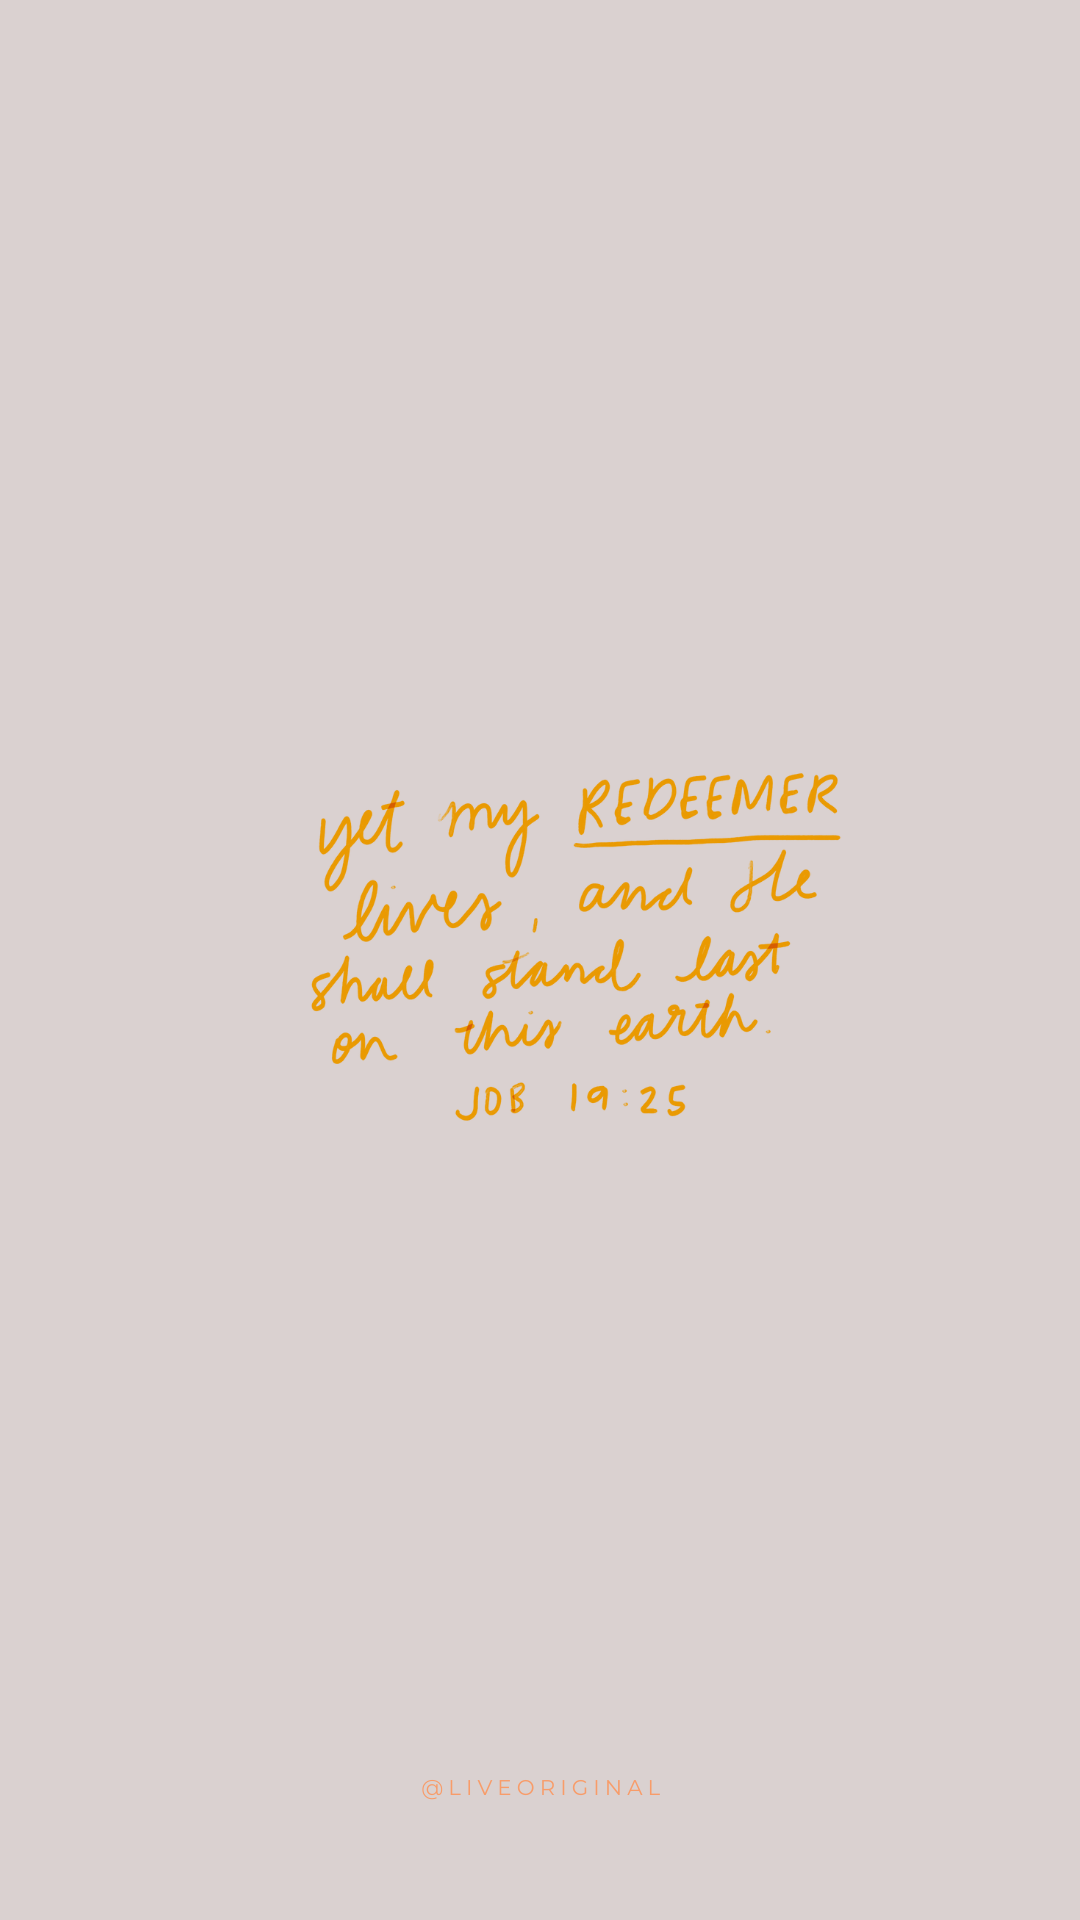 yet my REDEEMER
lives, and He
shall stand last
on this earth.
JOB 19:25
@LIVEORIGINAL